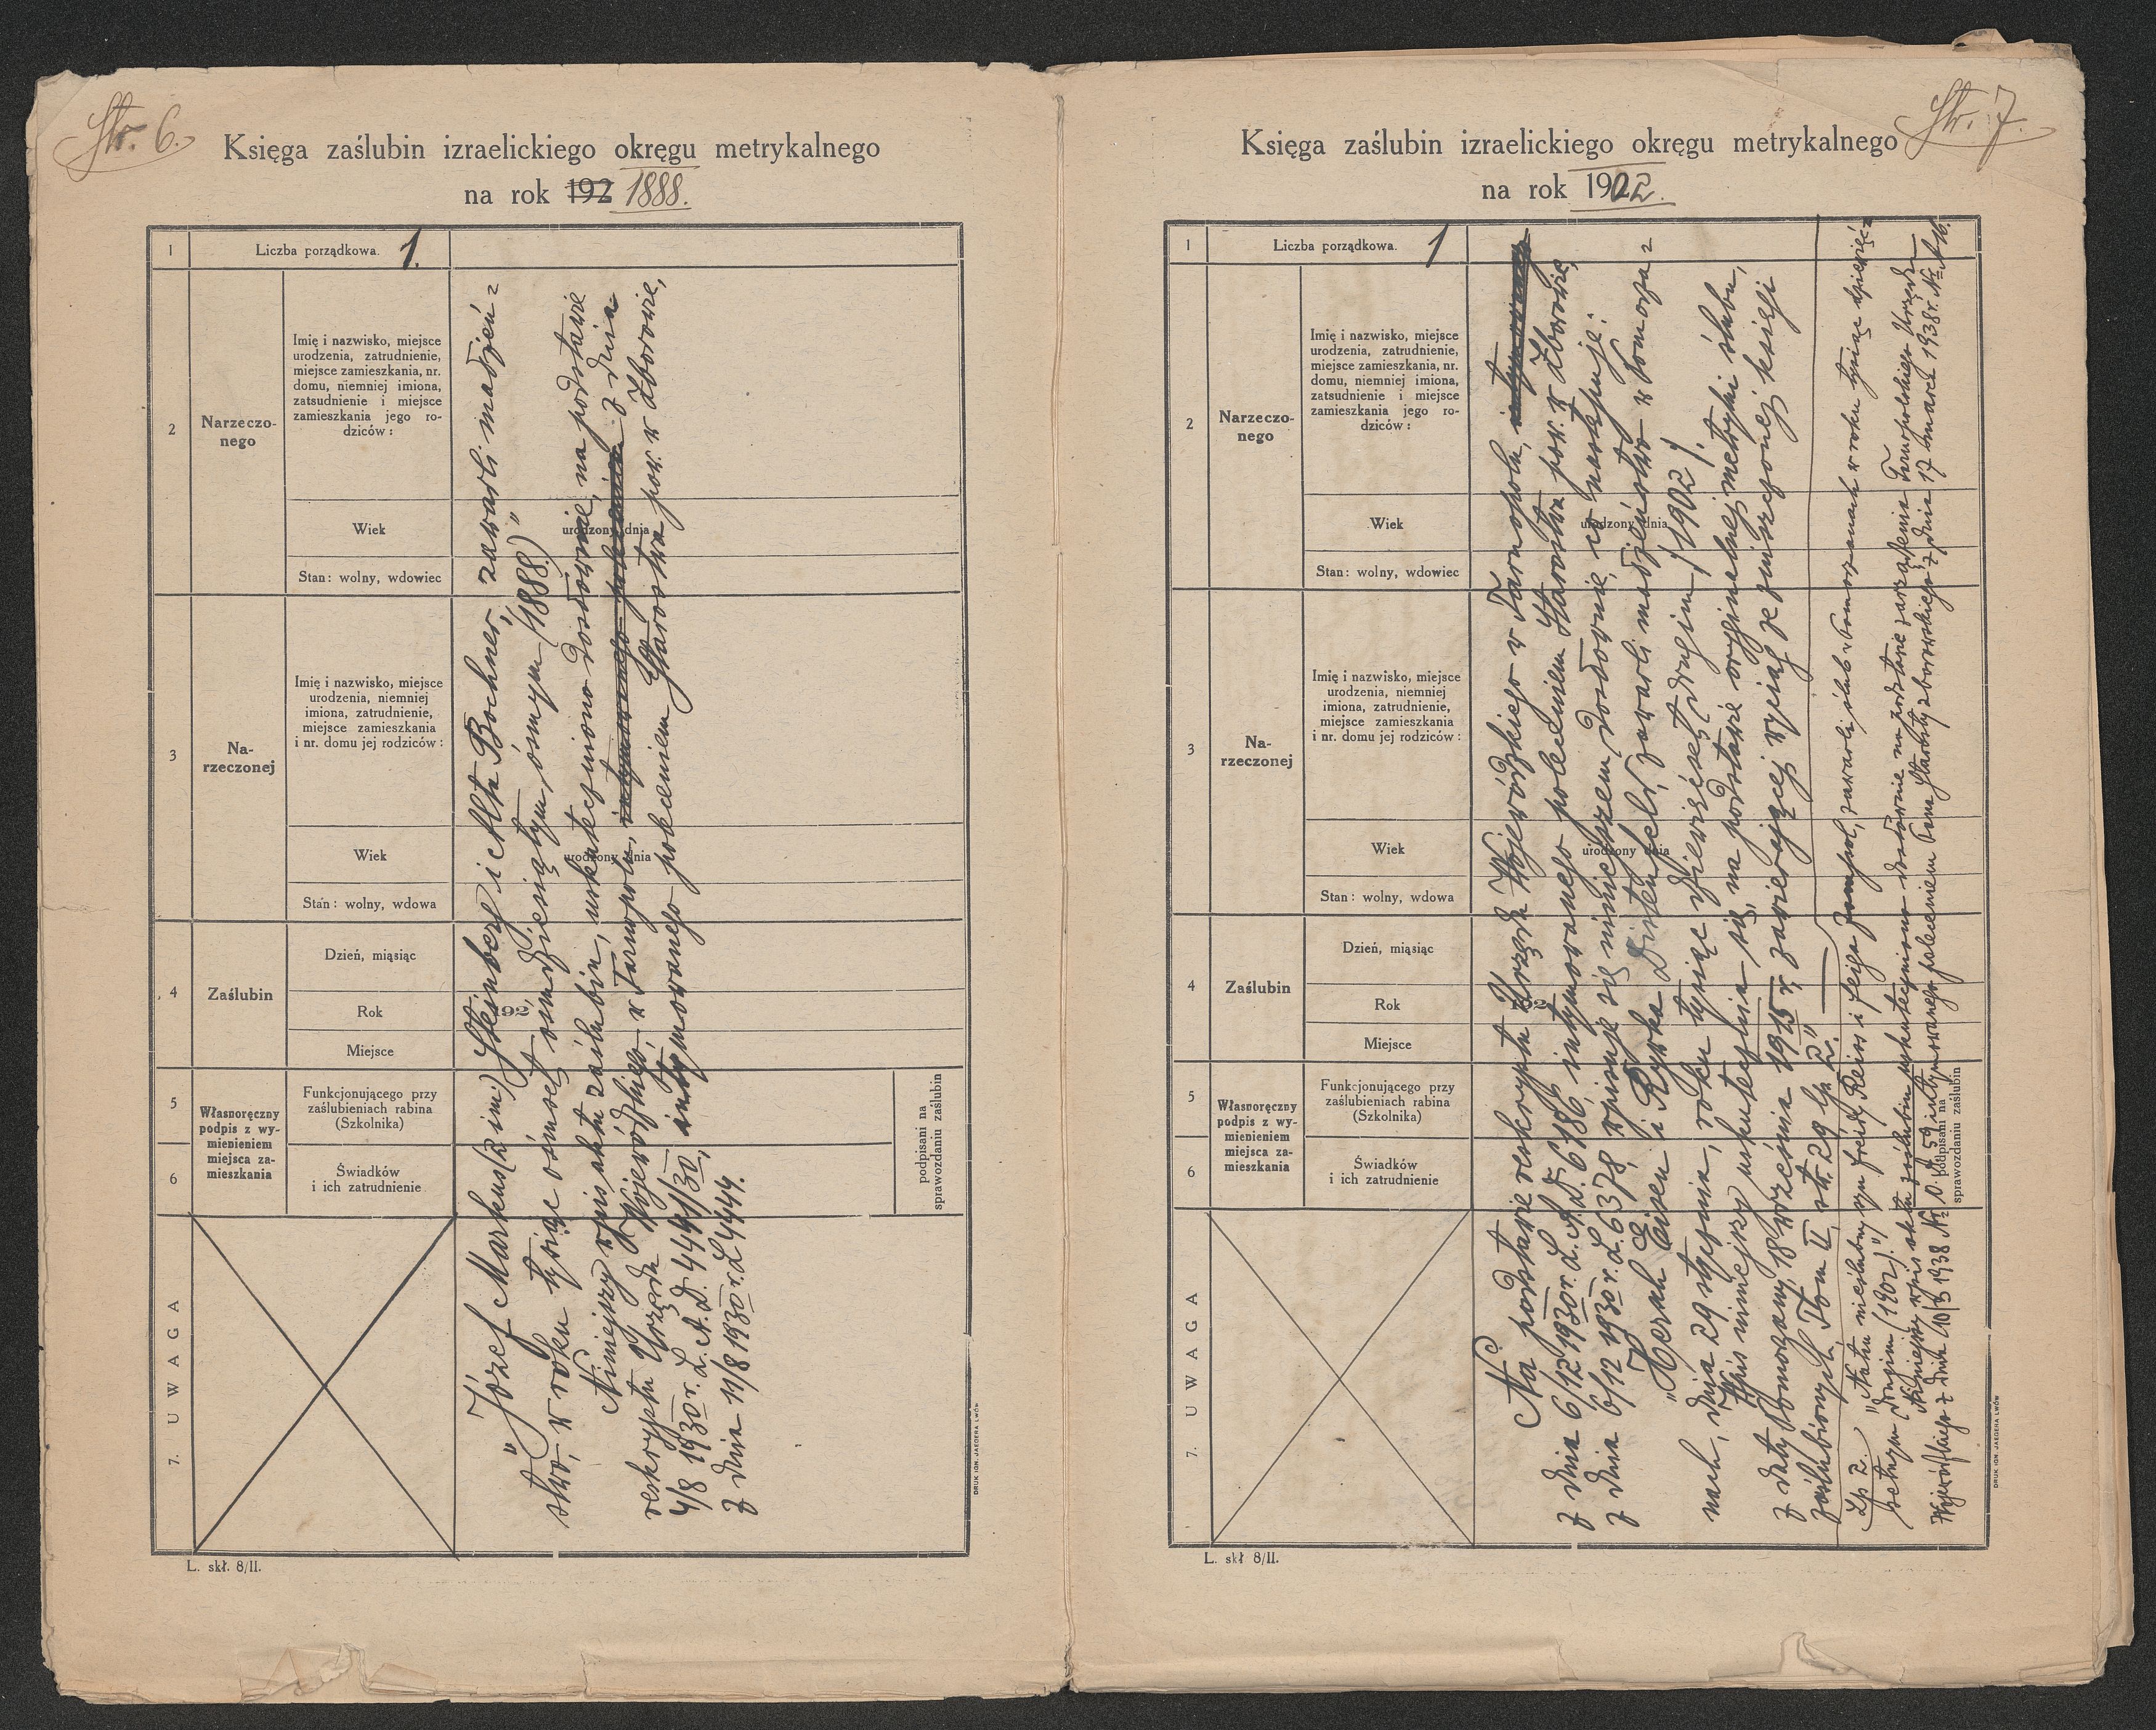 Str. 6.
Księga zaślubin izraelickiego okręgu metrykalnego
na rok 192 1888.
1
Liczba porządkowa.
1.
2
Narzeczo-
nego
Imię i nazwisko, miejsce
urodzenia, zatrudnienie,
miejsce zamieszkania, nr.
domu, niemniej imiona,
zatsudnienie i miejsce
zamieszkania jego ro-
dziców :
Wiek
urodzony dnia
Stan: wolny, wdowiec
3
Na-
rzeczonej
Imię i nazwisko, miejsce
urodzenia, niemniej
imiona, zatrudnienie,
miejsce zamieszkania
i nr. domu jej rodziców :
Wiek
urodzony dnia
Stan: wolny, wdowa
4
Zaślubin
Dzień, miąsiąc
Rok
192
Miejsce
5
Własnoręczny
podpis z wy-
mienieniem
miejsca za-
mieszkania
Funkcjonującego przy
zaślubieniach rabina
(Szkolnika)
6
Świadków
i ich zatrudnienie
podpisani na
sprawozdaniu zaślubin
7. UWAGA
„Józef Markus (2 im) Steinberg i Alta Bochner, zawarli małżeń=
stwo, w roku tysiąc ośmset ośmdziesiątym ósmym (1888.)”
Niniejszy wpis aktu zaślubin, uskuteczniono dosłownie, na podstawie
reskryptu Urzędu Wojewódzkiego, w Tarnopolu, intymowanego poleceniem z dnia
4/8 1930 r. L. A. D. 444/1/30, intymowanego poleceniem Starostwa pow. w Zborowie,
z dnia 11/8 1930 r. L 9444.
L. skł. 8/II.
DRUK IGN. JAEGERA LWÓW
Str. 7.
Księga zaślubin izraelickiego okręgu metrykalnego
na rok 1902.
1
Liczba porządkowa.
1
2
Narzeczo-
nego
Imię i nazwisko, miejsce
urodzenia, zatrudnienie,
miejsce zamieszkania, nr.
domu, niemniej imiona,
zatsudnienie i miejsce
zamieszkania jego ro-
dziców :
Wiek
urodzony dnia
Stan: wolny, wdowiec
3
Na-
rzeczonej
Imię i nazwisko, miejsce
urodzenia, niemniej
imiona, zatrudnienie,
miejsce zamieszkania
i nr. domu jej rodziców :
Wiek
urodzony dnia
Stan: wolny, wdowa
4
Zaślubin
Dzień, miąsiąc
Rok
192
Miejsce
5
Własnoręczny
podpis z wy-
mienieniem
miejsca za-
mieszkania
Funkcjonującego przy
zaślubieniach rabina
(Szkolnika)
6
Świadków
i ich zatrudnienie
podpisani na
sprawozdaniu zaślubin
7. UWAGA
Na podstawie reskryptu Urzędu Wojewódzkiego w Tarnopolu, intymowanego
z dnia 6/12 1930 r. L. A. D. 6786, intymowanego poleceniem Starostwa pow. w Zborowie,
z dnia 6/12 1930 r. L. 6378, wpisuje się niniejszem, dosłownie, co następuje:
„Herah Eisen i Rywka Distenfeld, zawarli małżeństwo w Pomorza=
nach, dnia 29 stycznia, roku tysiąc dziewięćset drugim /1902/.
Wpis niniejszy uskutecznia się, na podstawie oryginalnej metryki ślubu,
z daty Pomorzany, 18 września 1915 r., zawierającej wyciąg ze zniszczonej księgi
zaślubionych, Tom II, str. 29 lp. 2.”
Lp 2. „Natan nieślubny syn Freidy Reiss i Feiga Jampol, zawarli ślub w Pomorzanach w roku tysiąc dziewięć=
setnym drugim (1902).”
Niniejszy wpis aktu zaślubin uskuteczniono dosłownie na podstawie zarządzenia Tarnopolskiego Urzędu
Wojewódzkiego z dnia 10/3 1938 Nr. intymowanego poleceniem Pana Starosty zborowskiego z dnia 17 marca 1938 r. Nr
L. skł 8/II.
DRUK IGN. JAEGERA LWÓW